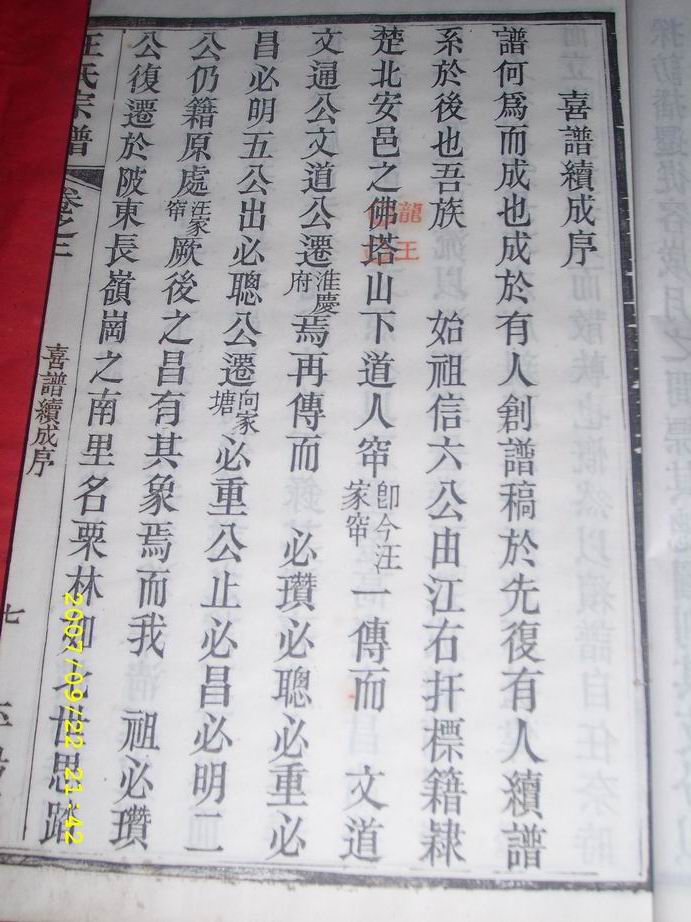 喜譜續成序
譜何為而成也成於有人創譜稿於先復有人續譜
系於後也吾族 始祖信六公由江右扦標籍隸
楚北安邑之佛塔山下道人帘即今汪家帘一傳而 文道
龍王
文通公文道公遷淮慶府焉再傳而 必瓚必聰必重必
昌必明五公出必聰公遷向家塘必重公止必昌必明二
公仍籍原處汪家帘厥後之昌有其象焉而我 祖必瓚
公復遷於陂東長嶺崗之南里名栗林如北世思踏
汪氏宗譜 卷之二 喜譜續成序 七
2007/09/22 21:42